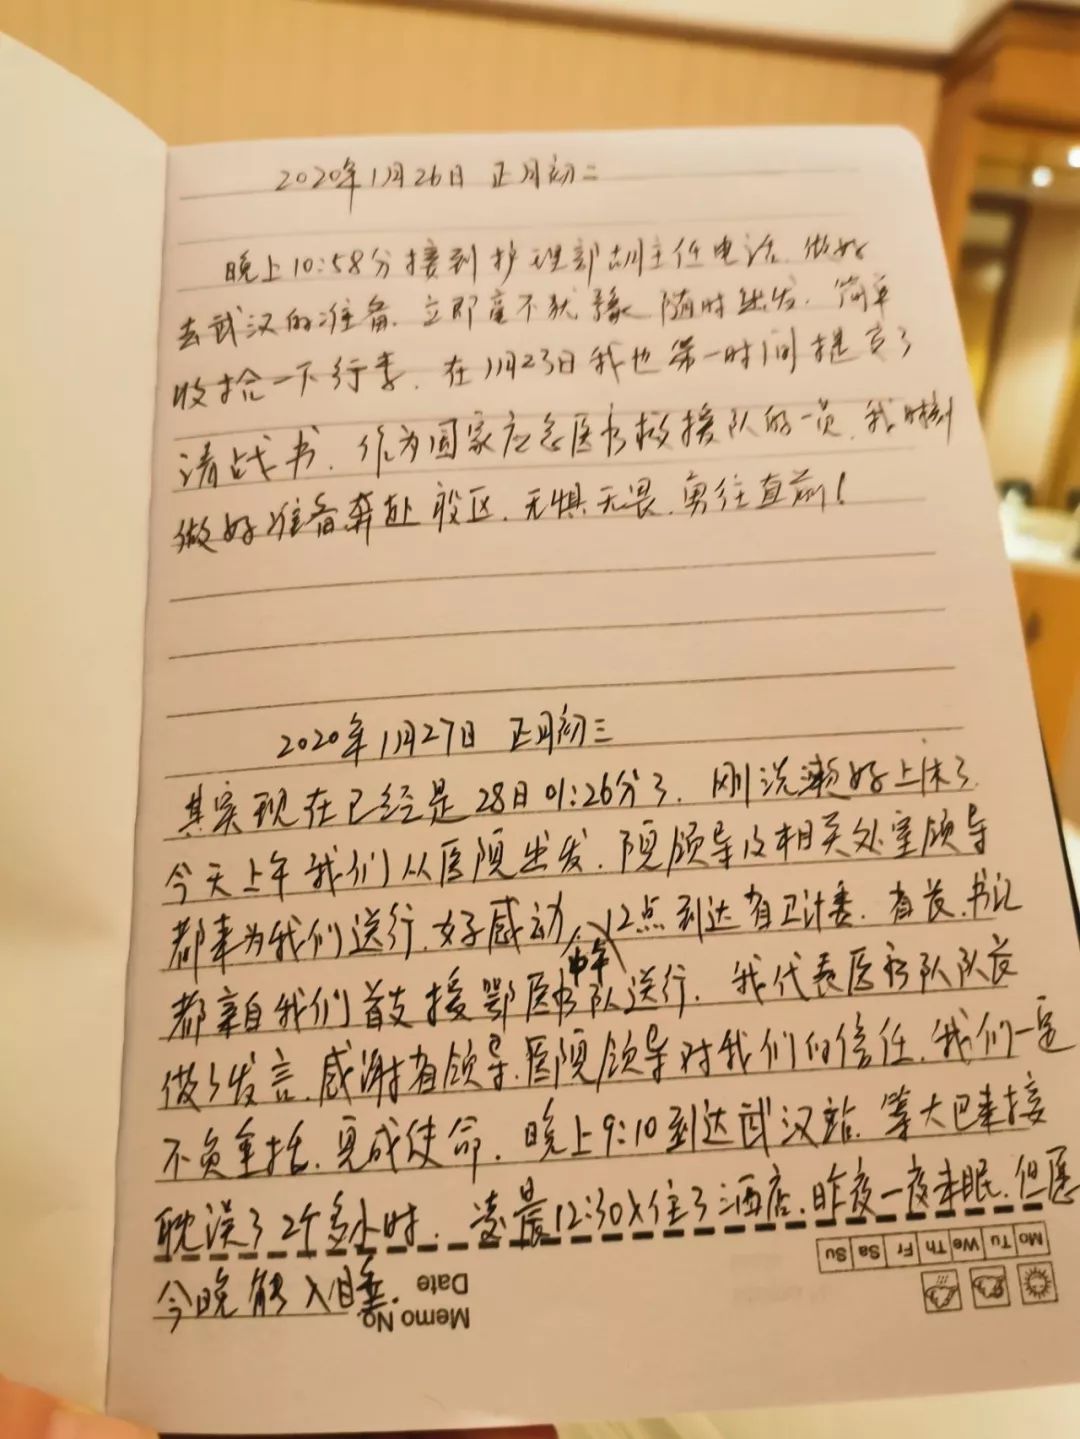 2020年1月26日 正月初二
晚上10:58分接到护理部胡主任电话,做好
去武汉的准备,立即毫不犹豫,随时出发,简单
收拾一下行李,在1月23日我也第一时间提交了
请战书,作为国家应急医疗救援队的一员,我时刻
做好准备奔赴疫区,无惧无畏,勇往直前!
2020年1月27日 正月初三
其实现在已经是28日01:26分了,刚洗漱好上床了
今天上午我们从医院出发,院领导及相关处室领导
都来为我们送行,好感动,12点到达省卫计委,省长,书记
都亲自我们首支援鄂医疗队送行,我代表医疗队队长
做了发言,感谢省领导,医院领导对我们的信任,我们一定
不负重托,完成使命,晚上9:10到达武汉站,等大巴来接
耽误了2个多小时,凌晨12:30入住了酒店,昨夜一夜未眠,但愿
今晚能入睡.
Mo Tu We Th Fr Sa Su
Memo No.
Date